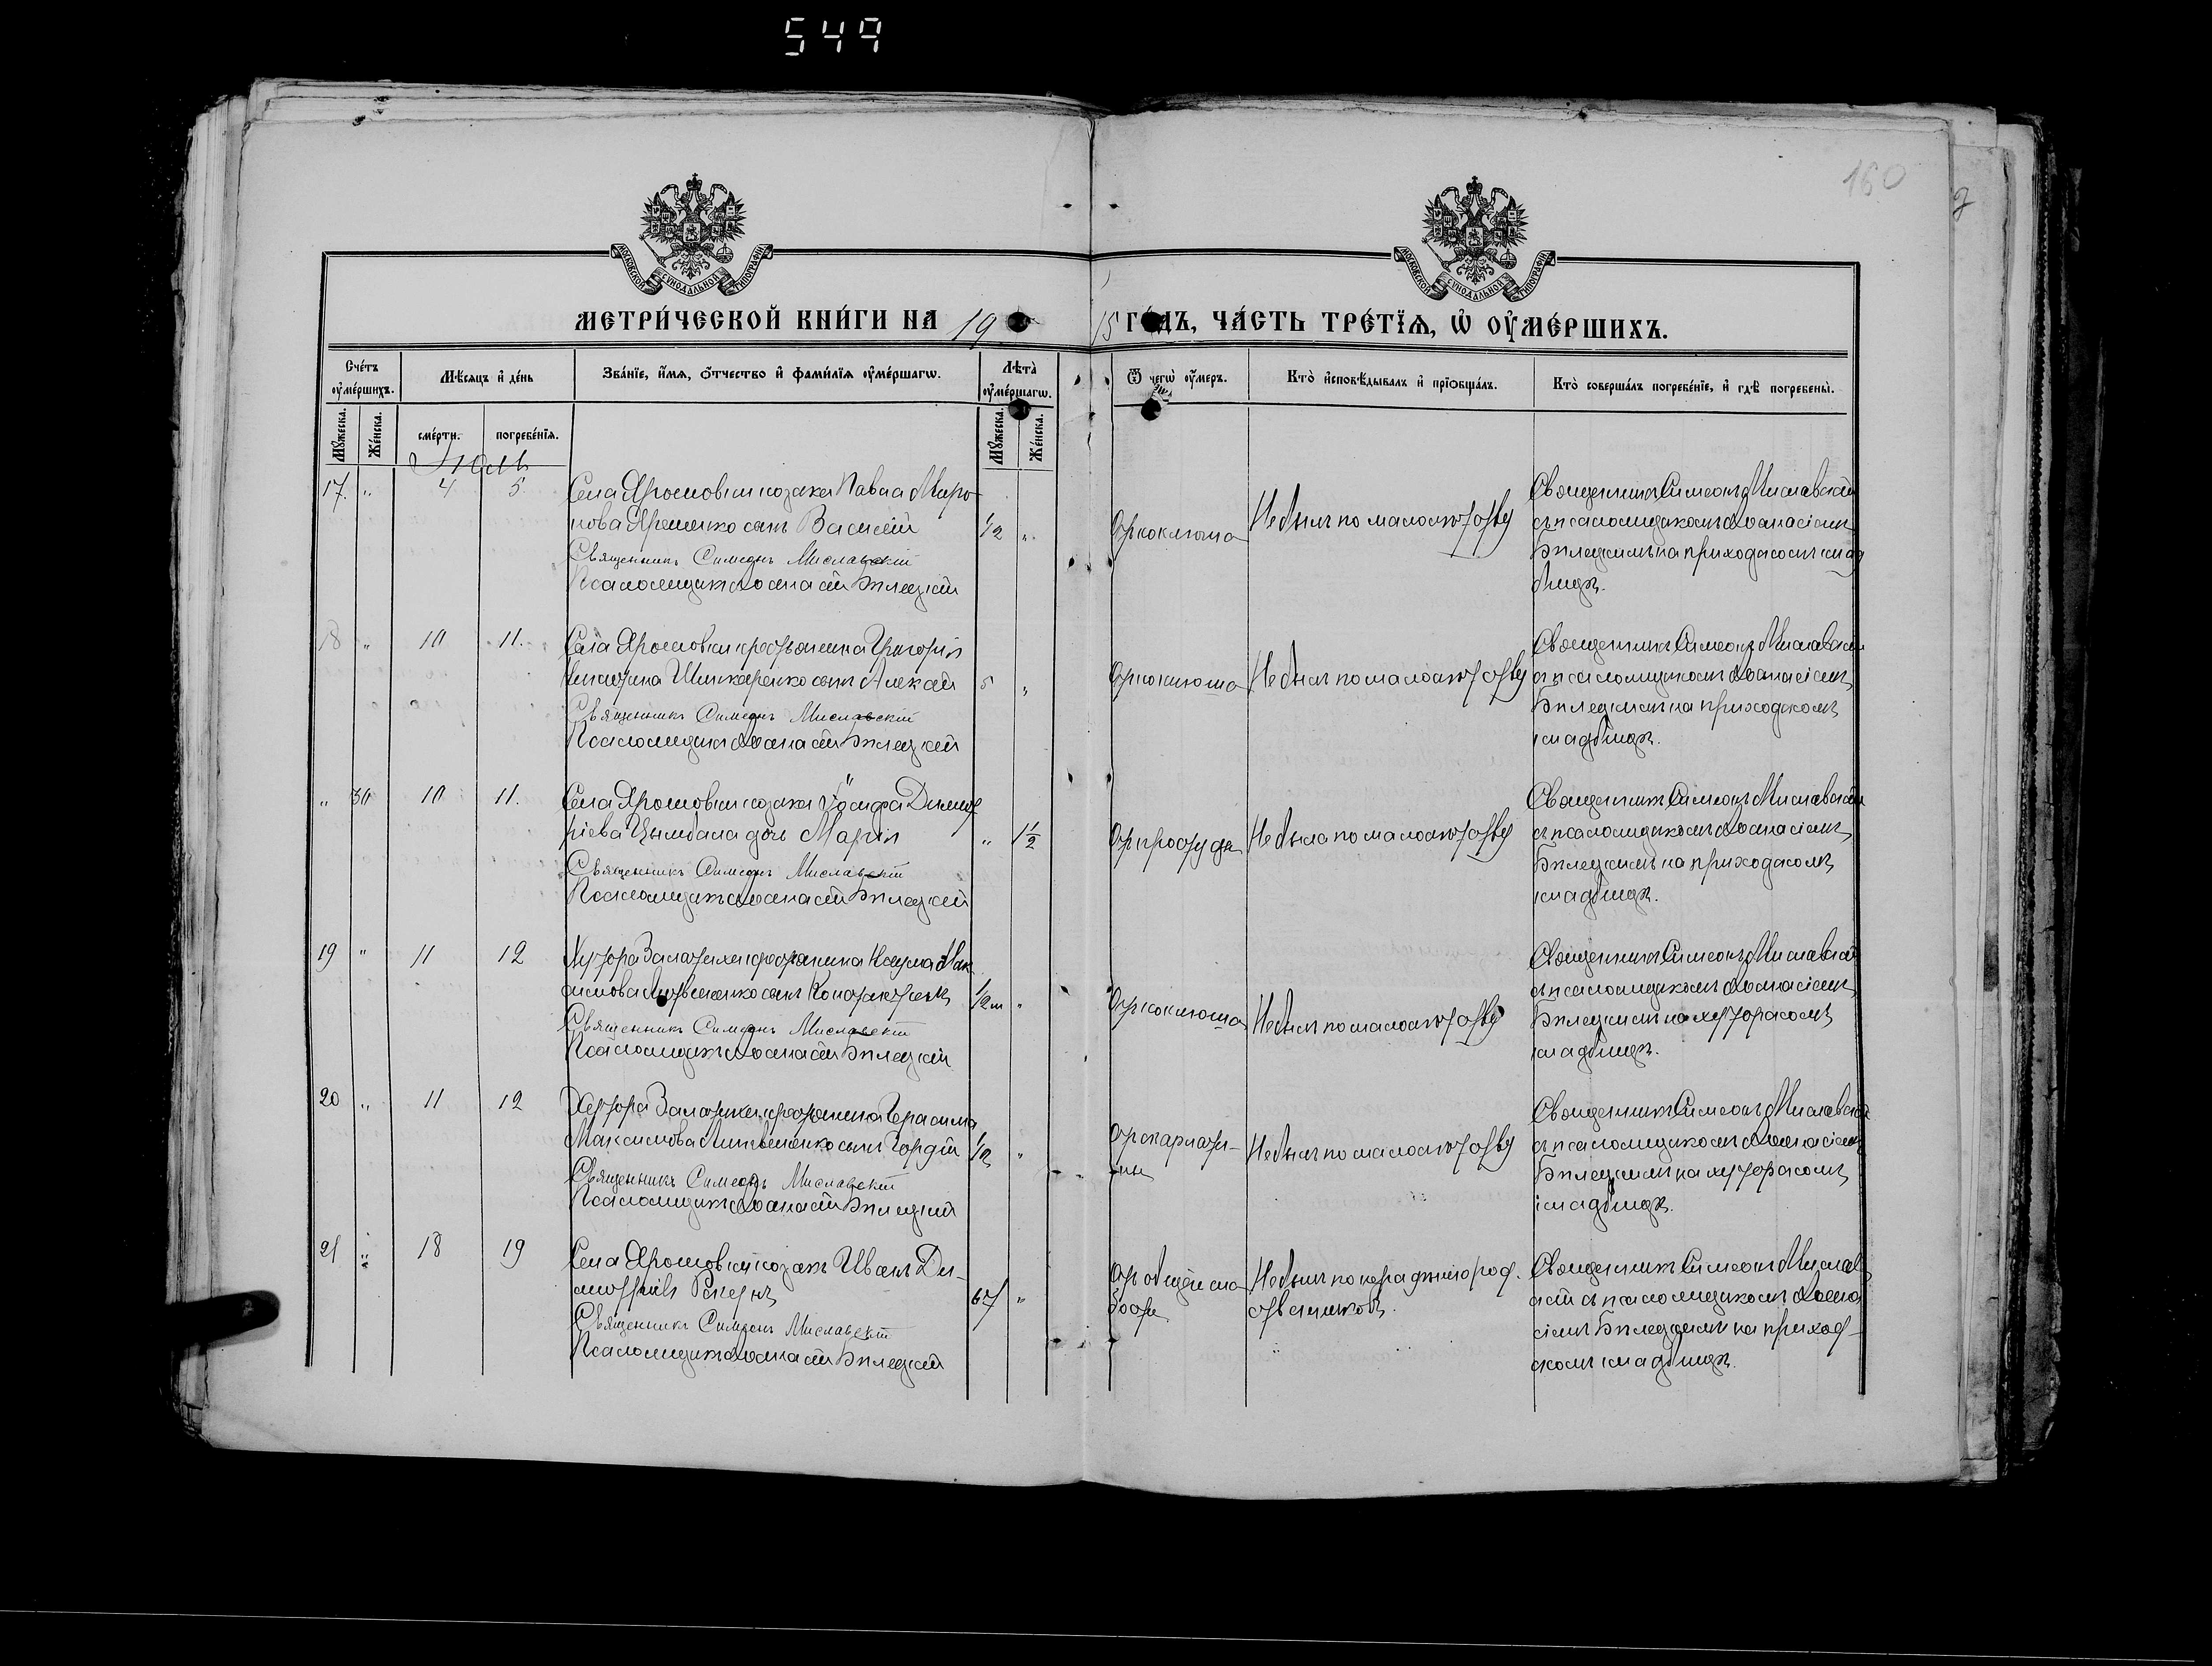 549
160
МОСКОВСКОЙ СѴНОДАЛЬНОЙ ТИПОГРАФІИ
МОСКОВСКОЙ СѴНОДАЛЬНОЙ ТИПОГРАФІИ
МЕТРИ́ЧЕСКОЙ КНИ́ГИ НА 1915 ГО́ДЪ, ЧА́СТЬ ТРЕ́ТІѦ, Ѡ҆ ОУ҆МЕ́РШИХЪ.
Сче́тъ оу҆ме́ршихъ.
Мѣ́сяцъ и҆ де́нь
Зва́нїе, и҆́мя, ѻ҆́тчество и҆ фами́лїя оу҆ме́ршагѡ.
Лѣ́та оу҆ме́ршагѡ.
Ѿ чегѡ̀ оу҆́меръ.
Кто̀ и҆сповѣ́дывалъ и҆ прїѡбща́лъ.
Кто̀ соверша́лъ погребе́нїе, и҆ гдѣ̀ погребены̀.
Мꙋ́жеска.
Же́нска.
сме́рти.
погребе́нїя.
Мꙋ́жеска.
Же́нска.
Іюль
17. " 4 5 Села Ярошовки козака Павла Миро-
нова Яременко сынъ Василій 1/2 "
Священникъ Симеонъ Миславскій
Псаломщикъ Аѳанасій Бѣлецкій
От коклюша
Не былъ по малолѣтству
Священникъ Симеонъ Миславскій
съ псаломщикомъ Аѳанасіемъ
Бѣлецкимъ на приходскомъ клад
бищѣ.
18 " 10 11. Села Ярошовки крестьянина Григорія
Шинкаренко сынъ Алексѣй 5 "
Священникъ Симеонъ Миславскій
Псаломщикъ Аѳанасій Бѣлецкій
От коклюша
Не былъ по малолѣтству
Священникъ Симеонъ Миславскій
съ псаломщикомъ Аѳанасіемъ
Бѣлецкимъ на приходскомъ
кладбищѣ.
" 30 10 11. Села Ярошовки козака Іосифа Димит
ріева Цымбала дочь Марія " 1 1/2
Священникъ Симеонъ Миславскій
Псаломщикъ Аѳанасій Бѣлецкій
От простуды
Не была по малолѣтству
Священникъ Симеонъ Миславскій
съ псаломщикомъ Аѳанасіемъ
Бѣлецкимъ на приходскомъ
кладбищѣ.
19 " 11 12 Хутора Залатихи крестьянина Наума Мак
симова Литвиненко сынъ 1/2 "
Священникъ Симеонъ Миславскій
Псаломщикъ Аѳанасій Бѣлецкій
От коклюша
Не былъ по малолѣтству
Священникъ Симеонъ Миславскій
съ псаломщикомъ Аѳанасіемъ
Бѣлецкимъ на хуторскомъ
кладбищѣ.
20 " 11 12 Хутора Залатихи крестьянина Герасима
Максимова Литвиненко сынъ Гордій 1/2 "
Священникъ Симеонъ Миславскій
Псаломщикъ Аѳанасій Бѣлецкій
От скарлати-
ны
Не былъ по малолѣтству
Священникъ Симеонъ Миславскій
съ псаломщикомъ Аѳанасіемъ
Бѣлецкимъ на хуторскомъ
кладбищѣ.
21 " 18 19 Села Ярошовки козакъ Иванъ Ди-
67 "
Священникъ Симеонъ Миславскій
Псаломщикъ Аѳанасій Бѣлецкій
От общей сла
бости
Не былъ по нерадѣнію род-
ственниковъ.
Священникъ Симеонъ Мислав
скій съ псаломщикомъ Аѳана
сіемъ Бѣлецкимъ на приход-
скомъ кладбищѣ.